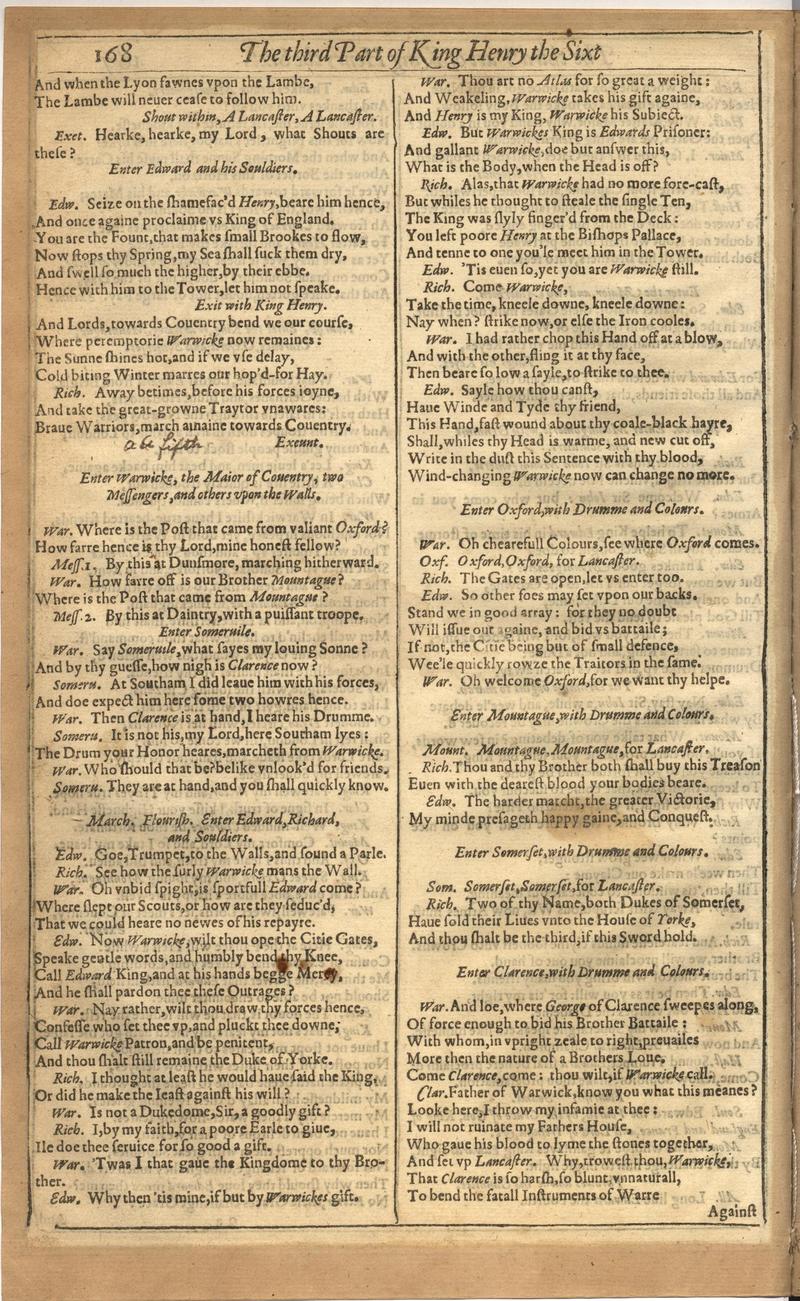 168 The third Part of King Henry the Sixt
And when the Lyon fawnes vpon the Lambe,
The Lambe will neuer ceaſe to follow him.
Shout within, A Lancaſter, A Lancaſter.
Exet. Hearke, hearke, my Lord, what Shouts are
theſe?
Enter Edward and his Souldiers.
Edw. Seize on the ſhamefac'd Henry, beare him hence,
And once againe proclaime vs King of England.
You are the Fount, that makes ſmall Brookes to flow,
Now ſtops thy Spring, my Sea ſhall ſuck them dry,
And ſwell ſo much the higher, by their ebbe.
Hence with him to the Tower, let him not ſpeake.
Exit with King Henry.
And Lords, towards Couentry bend we our courſe,
Where peremptorie Warwicke now remaines:
The Sunne ſhines hot, and if we vſe delay,
Cold biting Winter marres our hop'd-for Hay.
Rich. Away betimes, before his forces ioyne,
And take the great-growne Traytor vnawares:
Braue Warriors, march amaine towards Couentry.
Exeunt.
Enter Warwicke, the Maior of Couentry, two
Meſſengers, and others vpon the Walls.
War. Where is the Poſt that came from valiant Oxford?
How farre hence is thy Lord, mine honeſt fellow?
Meſſ. 1. By this at Dunſmore, marching hitherward.
War. How farre off is our Brother Mountague?
Where is the Poſt that came from Mountague?
Meſſ. 2. By this at Daintry, with a puiſſant troope.
Enter Someruile.
War. Say Someruile, what ſayes my louing Sonne?
And by thy gueſſe, how nigh is Clarence now?
Someru. At Southam I did leaue him with his forces,
And doe expect him here ſome two howres hence.
War. Then Clarence is at hand, I heare his Drumme.
Someru. It is not his, my Lord, here Southam lyes:
The Drum your Honor heares, marcheth from Warwicke.
War. Who ſhould that be? belike vnlook'd for friends.
Someru. They are at hand, and you ſhall quickly know.
March. Flouriſh. Enter Edward, Richard,
and Souldiers.
Edw. Goe, Trumpet, to the Walls, and ſound a Parle.
Rich. See how the ſurly Warwicke mans the Wall.
War. Oh vnbid ſpight, is ſportfull Edward come?
Where ſlept our Scouts, or how are they ſeduc'd,
That we could heare no newes of his repayre.
Edw. Now Warwicke, wilt thou ope the Citie Gates,
Speake gentle words, and humbly bend thy Knee,
Call Edward King, and at his hands begge Mercy,
And he ſhall pardon thee theſe Outrages?
War. Nay rather, wilt thou draw thy forces hence,
Confeſſe who ſet thee vp, and pluckt thee downe,
Call Warwicke Patron, and be penitent,
And thou ſhalt ſtill remaine the Duke of Yorke.
Rich. I thought at leaſt he would haue ſaid the King,
Or did he make the Ieaſt againſt his will?
War. Is not a Dukedome, Sir, a goodly gift?
Rich. I, by my faith, for a poore Earle to giue,
Ile doe thee ſeruice for ſo good a gift.
War. 'Twas I that gaue the Kingdome to thy Bro-
ther.
Edw. Why then 'tis mine, if but by Warwickes gift.
War. Thou art no Atlas for ſo great a weight:
And Weakeling, Warwicke takes his gift againe,
And Henry is my King, Warwicke his Subiect.
Edw. But Warwickes King is Edwards Priſoner:
And gallant Warwicke, doe but anſwer this,
What is the Body, when the Head is off?
Rich. Alas, that Warwicke had no more fore-caſt,
But whiles he thought to ſteale the ſingle Ten,
The King was ſlyly finger'd from the Deck:
You left poore Henry at the Biſhops Pallace,
And tenne to one you'le meet him in the Tower.
Edw. 'Tis euen ſo, yet you are Warwicke ſtill.
Rich. Come Warwicke,
Take the time, kneele downe, kneele downe:
Nay when? ſtrike now, or elſe the Iron cooles.
War. I had rather chop this Hand off at a blow,
And with the other, fling it at thy face,
Then beare ſo low a ſayle, to ſtrike to thee.
Edw. Sayle how thou canſt,
Haue Winde and Tyde thy friend,
This Hand, faſt wound about thy coale-black hayre,
Shall, whiles thy Head is warme, and new cut off,
Write in the duſt this Sentence with thy blood,
Wind-changing Warwicke now can change no more.
Enter Oxford, with Drumme and Colours.
War. Oh chearefull Colours, ſee where Oxford comes.
Oxf. Oxford, Oxford, for Lancaſter.
Rich. The Gates are open, let vs enter too.
Edw. So other foes may ſet vpon our backs.
Stand we in good array: for they no doubt
Will iſſue out againe, and bid vs battaile;
If not, the Citie being but of ſmall defence,
Wee'le quickly rowze the Traitors in the ſame.
War. Oh welcome Oxford, for we want thy helpe.
Enter Mountague, with Drumme and Colours.
Mount. Mountague, Mountague, for Lancaſter.
Rich. Thou and thy Brother both ſhall buy this Treaſon
Euen with the deareſt blood your bodies beare.
Edw. The harder matcht, the greater Victorie,
My minde preſageth happy gaine, and Conqueſt.
Enter Somerſet, with Drumme and Colours.
Som. Somerſet, Somerſet, for Lancaſter.
Rich. Two of thy Name, both Dukes of Somerſet,
Haue ſold their Liues vnto the Houſe of Yorke,
And thou ſhalt be the third, if this Sword hold.
Enter Clarence, with Drumme and Colours.
War. And loe, where George of Clarence ſweepes along,
Of force enough to bid his Brother Battaile:
With whom, in vpright zeale to right, preuailes
More then the nature of a Brothers Loue.
Come Clarence, come: thou wilt, if Warwicke call.
Clar. Father of Warwick, know you what this meanes?
Looke here, I throw my infamie at thee:
I will not ruinate my Fathers Houſe,
Who gaue his blood to lyme the ſtones together,
And ſet vp Lancaſter. Why, troweſt thou, Warwicke,
That Clarence is ſo harſh, ſo blunt, vnnaturall,
To bend the fatall Inſtruments of Warre
Againſt